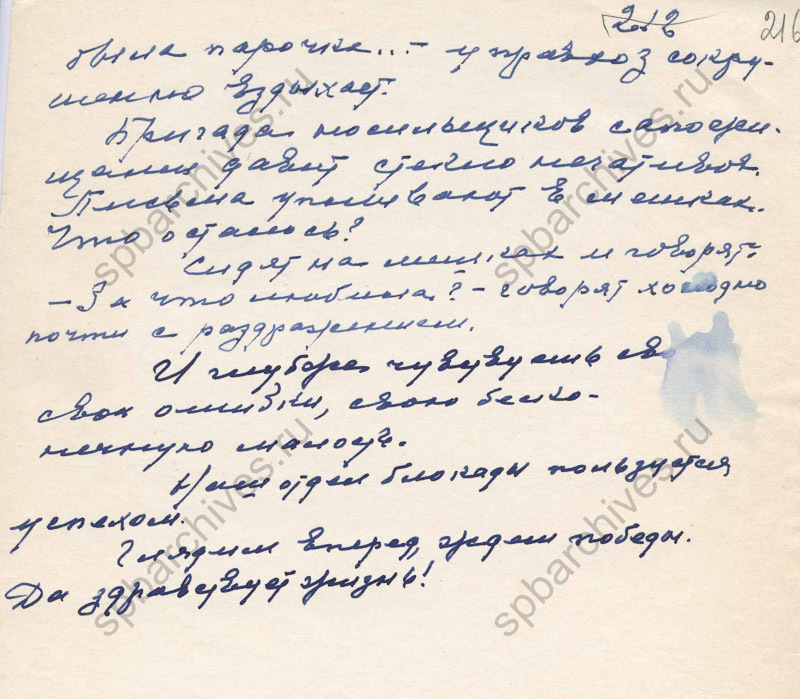 212 216
была парочка...– управхоз сокру-
шенно вздыхает.
Бригада носильщиков сапожи-
щами давит стекло негативов.
Письма упаливают в мешках.
Что осталось?
Сидят на мешках и говорят:
– За что любила? – говорят холодно
почти с раздражением.
И глубже чувствуешь
свои ошибки, свою беско-
нечную малость.
Наш отдел блокады пользуется
успехом.
Глядим вперед, ждем победы.
Да здравствует жизнь!
spbarchives.ru
spbarchives.ru
spbarchives.ru
spbarchives.ru